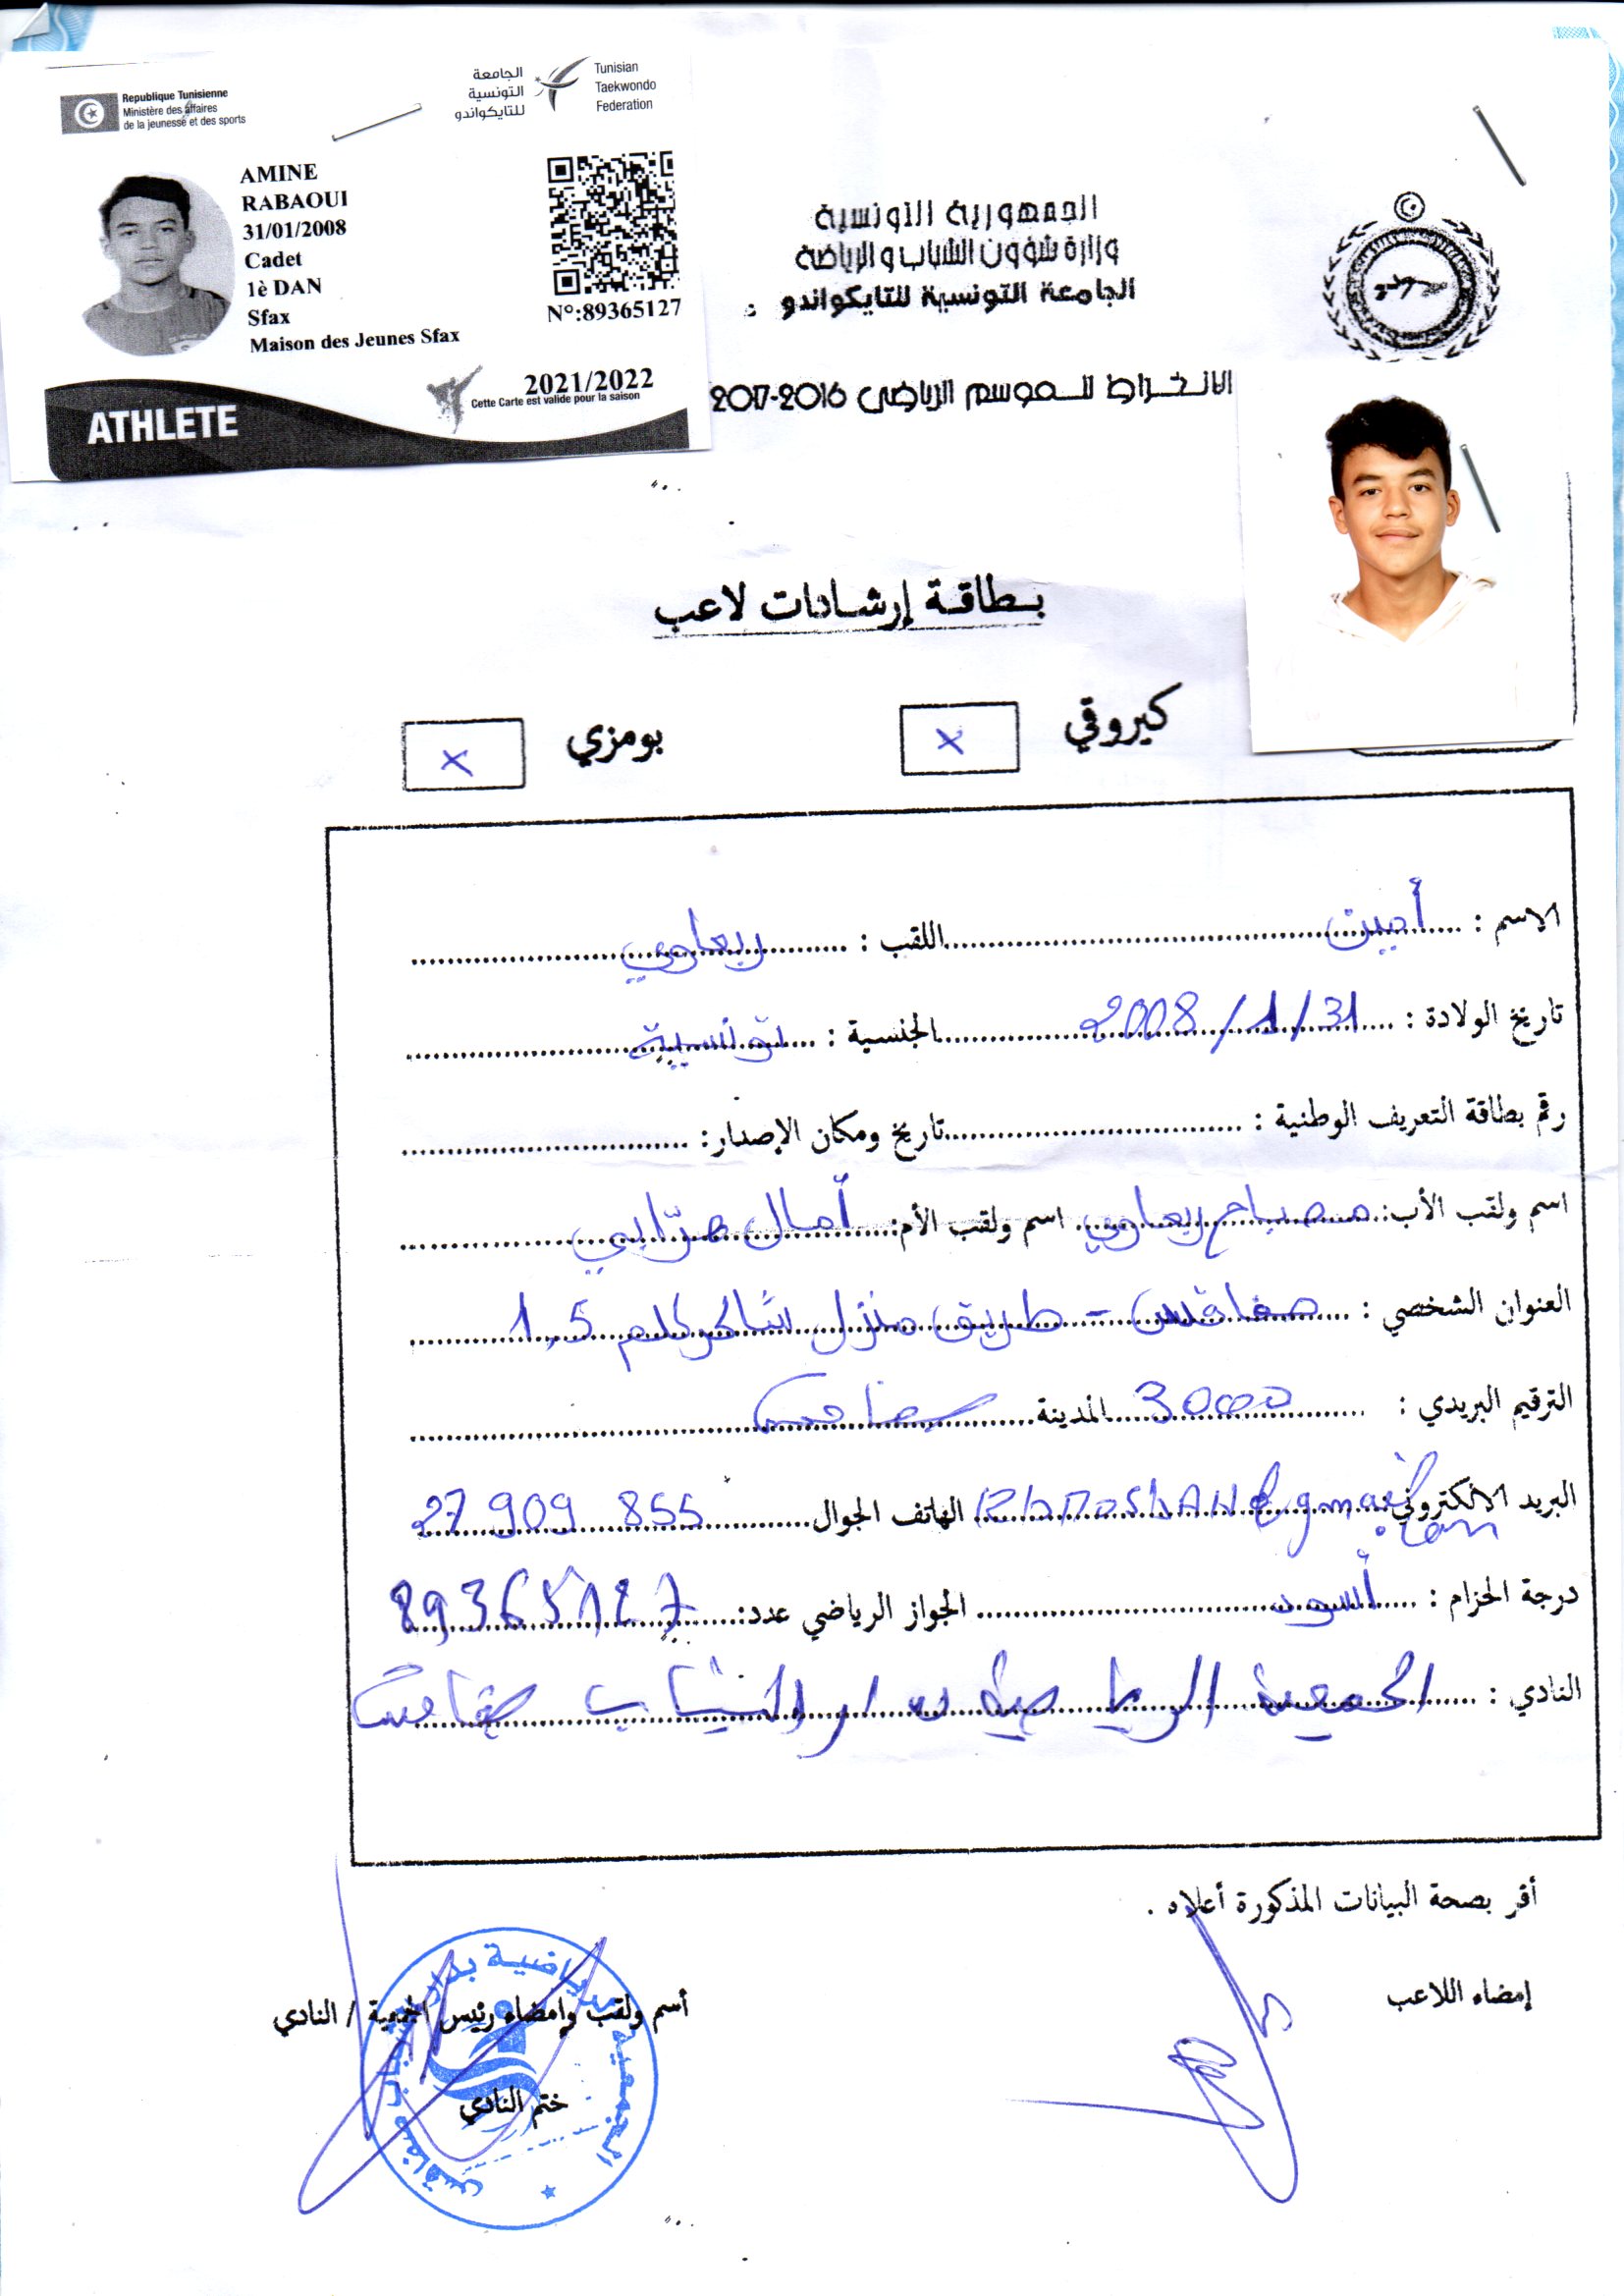 Republique Tunisienne
Ministère des affaires
de la jeunesse et des sports
الجامعة
التونسية
للتايكواندو
Tunisian
Taekwondo
Federation
AMINE
RABAOUI
31/01/2008
Cadet
1è DAN
Sfax
Maison des Jeunes Sfax
N°:89365127
2021/2022
Cette Carte est valide pour la saison
ATHLETE
الجمهورية التونسية
وزارة شؤون الشباب والرياضة
الجامعة التونسية للتايكواندو
الانخراط للموسم الرياضي 2016-2017
بطاقة إرشادات لاعب
كيروقي X بومزي X
الاسم : أمين اللقب : ربعاوي
تاريخ الولادة : 31/1/2008 الجنسية : تونسية
رقم بطاقة التعريف الوطنية : تاريخ ومكان الإصدار:
اسم ولقب الأب: مصباح ربعاوي اسم ولقب الأم: أمال
العنوان الشخصي : صفاقس - طريق منزل شاكر كلم 1,5
الترقيم البريدي : 3000 المدينة صفاقس
البريد الالكتروني: @gmail.com الهاتف الجوال 27 909 855
درجة الحزام : أسود الجواز الرياضي عدد: 89365127
النادي : الجمعية الرياضية بدار الشباب صفاقس
أقر بصحة البيانات المذكورة أعلاه .
إمضاء اللاعب
أسم ولقب وإمضاء رئيس الجمعية / النادي
ختم النادي
الجمعية الرياضية بدار الشباب صفاقس